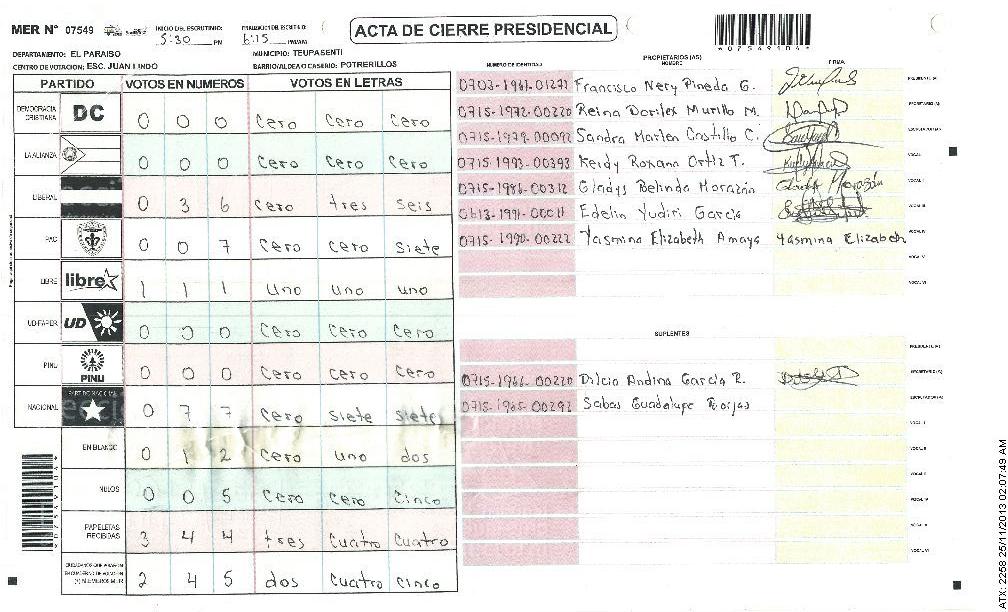 MER Nº 07549 INICIO DEL ESCRUTINIO: 5:30 PM FINALIZACION DEL ESCRUTINIO: 6:15 PM/AM ACTA DE CIERRE PRESIDENCIAL
DEPARTAMENTO: EL PARAISO MUNICIPIO: TEUPASENTI
CENTRO DE VOTACION: ESC. JUAN LINDO BARRIO/ALDEA O CASERIO: POTRERILLOS
PARTIDO VOTOS EN NUMEROS VOTOS EN LETRAS
DEMOCRACIA CRISTIANA DC 0 0 0 Cero Cero Cero
LA ALIANZA 0 0 0 Cero Cero Cero
LIBERAL 0 3 6 Cero tres seis
PAC 0 0 7 Cero Cero siete
LIBRE libre 1 1 1 uno uno uno
UD-FAPER UD 0 0 0 Cero Cero Cero
PINU PINU 0 0 0 Cero Cero Cero
NACIONAL PARTIDO NACIONAL 0 7 7 Cero siete siete
EN BLANCO 0 1 2 Cero uno dos
NULOS 0 0 5 Cero Cero Cinco
PAPELETAS RECIBIDAS 3 4 4 tres Cuatro Cuatro
2 4 5 dos Cuatro cinco
NUMERO DE IDENTIDAD PROPIETARIOS (AS) NOMBRE FIRMA
0703-1961-01271 Francisco Nery Pineda G. PRESIDENTE (A)
0715-1972-00220 Reina Dorilex Murillo M. SECRETARIO (A)
0715-1979-00092 Sandra Marlen Castillo C. ESCRUTADOR (A)
0715-1993-00393 Keidy Roxana Ortiz T. VOCAL I
0715-1986-00312 Gladys Belinda Morazán Gladys Morazán VOCAL II
0613-1991-00011 Edelin Yudiri Garcia VOCAL III
0715-1990-00222 Yasmina Elizabeth Amaya Yasmina Elizabeth VOCAL IV
VOCAL V
VOCAL VI
SUPLENTES
PRESIDENTE (A)
0715-1966-00220 Dilcia Andina Garcia R. SECRETARIO (A)
0715-1965-00292 Sabas Guadalupe Borjas ESCRUTADOR (A)
VOCAL I
VOCAL II
VOCAL III
VOCAL IV
VOCAL V
VOCAL VI
ATX: 2258 25/11/2013 02:07:49 AM